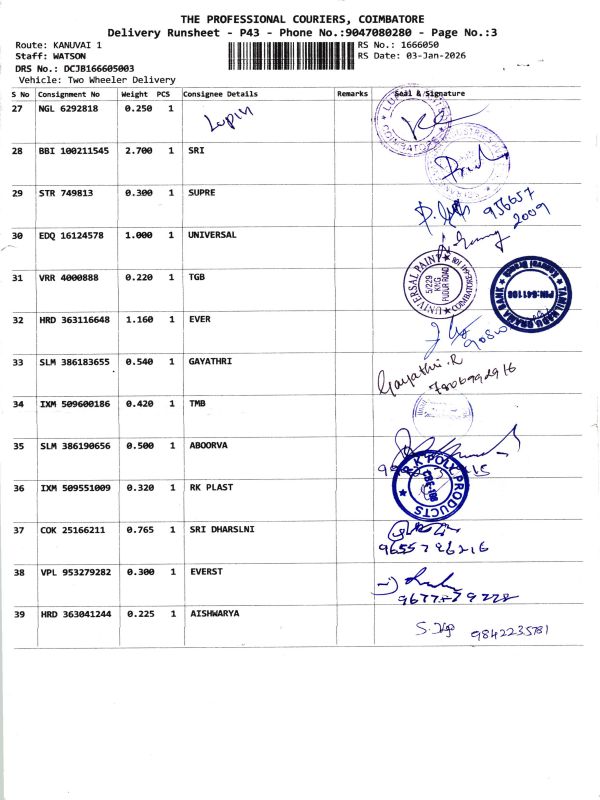 THE PROFESSIONAL COURIERS, COIMBATORE
Delivery Runsheet - P43 - Phone No.:9047080280 - Page No.:3
Route: KANUVAI 1
RS No.: 1666050
Staff: WATSON
RS Date: 03-Jan-2026
DRS No.: DCJB166605003
Vehicle: Two Wheeler Delivery
S No Consignment No Weight PCS Consignee Details Remarks Seal & Signature
27 NGL 6292818 0.250 1 Lupin
28 BBI 100211545 2.700 1 SRI
29 STR 749813 0.300 1 SUPRE
956657
2009
30 EDQ 16124578 1.000 1 UNIVERSAL
31 VRR 4000888 0.220 1 TGB
UNIVERSAL PAINT
5/229
KNG
PUDUR ROAD
TAMIL NADU GRAMA BANK
Kanuvai Branch
PIN:641108
32 HRD 363116648 1.160 1 EVER
33 SLM 386183655 0.540 1 GAYATHRI
Gayathri.R
34 IXM 509600186 0.420 1 TMB
35 SLM 386190656 0.500 1 ABOORVA
36 IXM 509551009 0.320 1 RK PLAST
R.K POLY PRODUCTS
37 COK 25166211 0.765 1 SRI DHARSLNI
9655796216
38 VPL 953279282 0.300 1 EVERST
39 HRD 363041244 0.225 1 AISHWARYA
9842235781